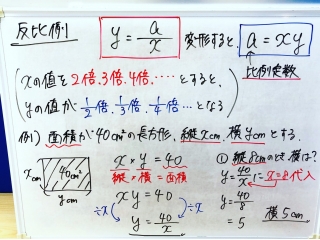 反比例
y = a/x 変形すると、 a = xy
比例定数
xの値を2倍、3倍、4倍、‥‥とすると、
yの値が 1/2倍、1/3倍、1/4倍…となる
例) 面積が40cm²の長方形、縦xcm、横ycmとする。
xcm 40cm² ycm
x × y = 40
縦 × 横 = 面積
xy = 40
÷x ÷x
y = 40/x
① 縦8cmのとき、横は?
y = 40/x に x=8を代入
y = 40/8
= 5
横5cm